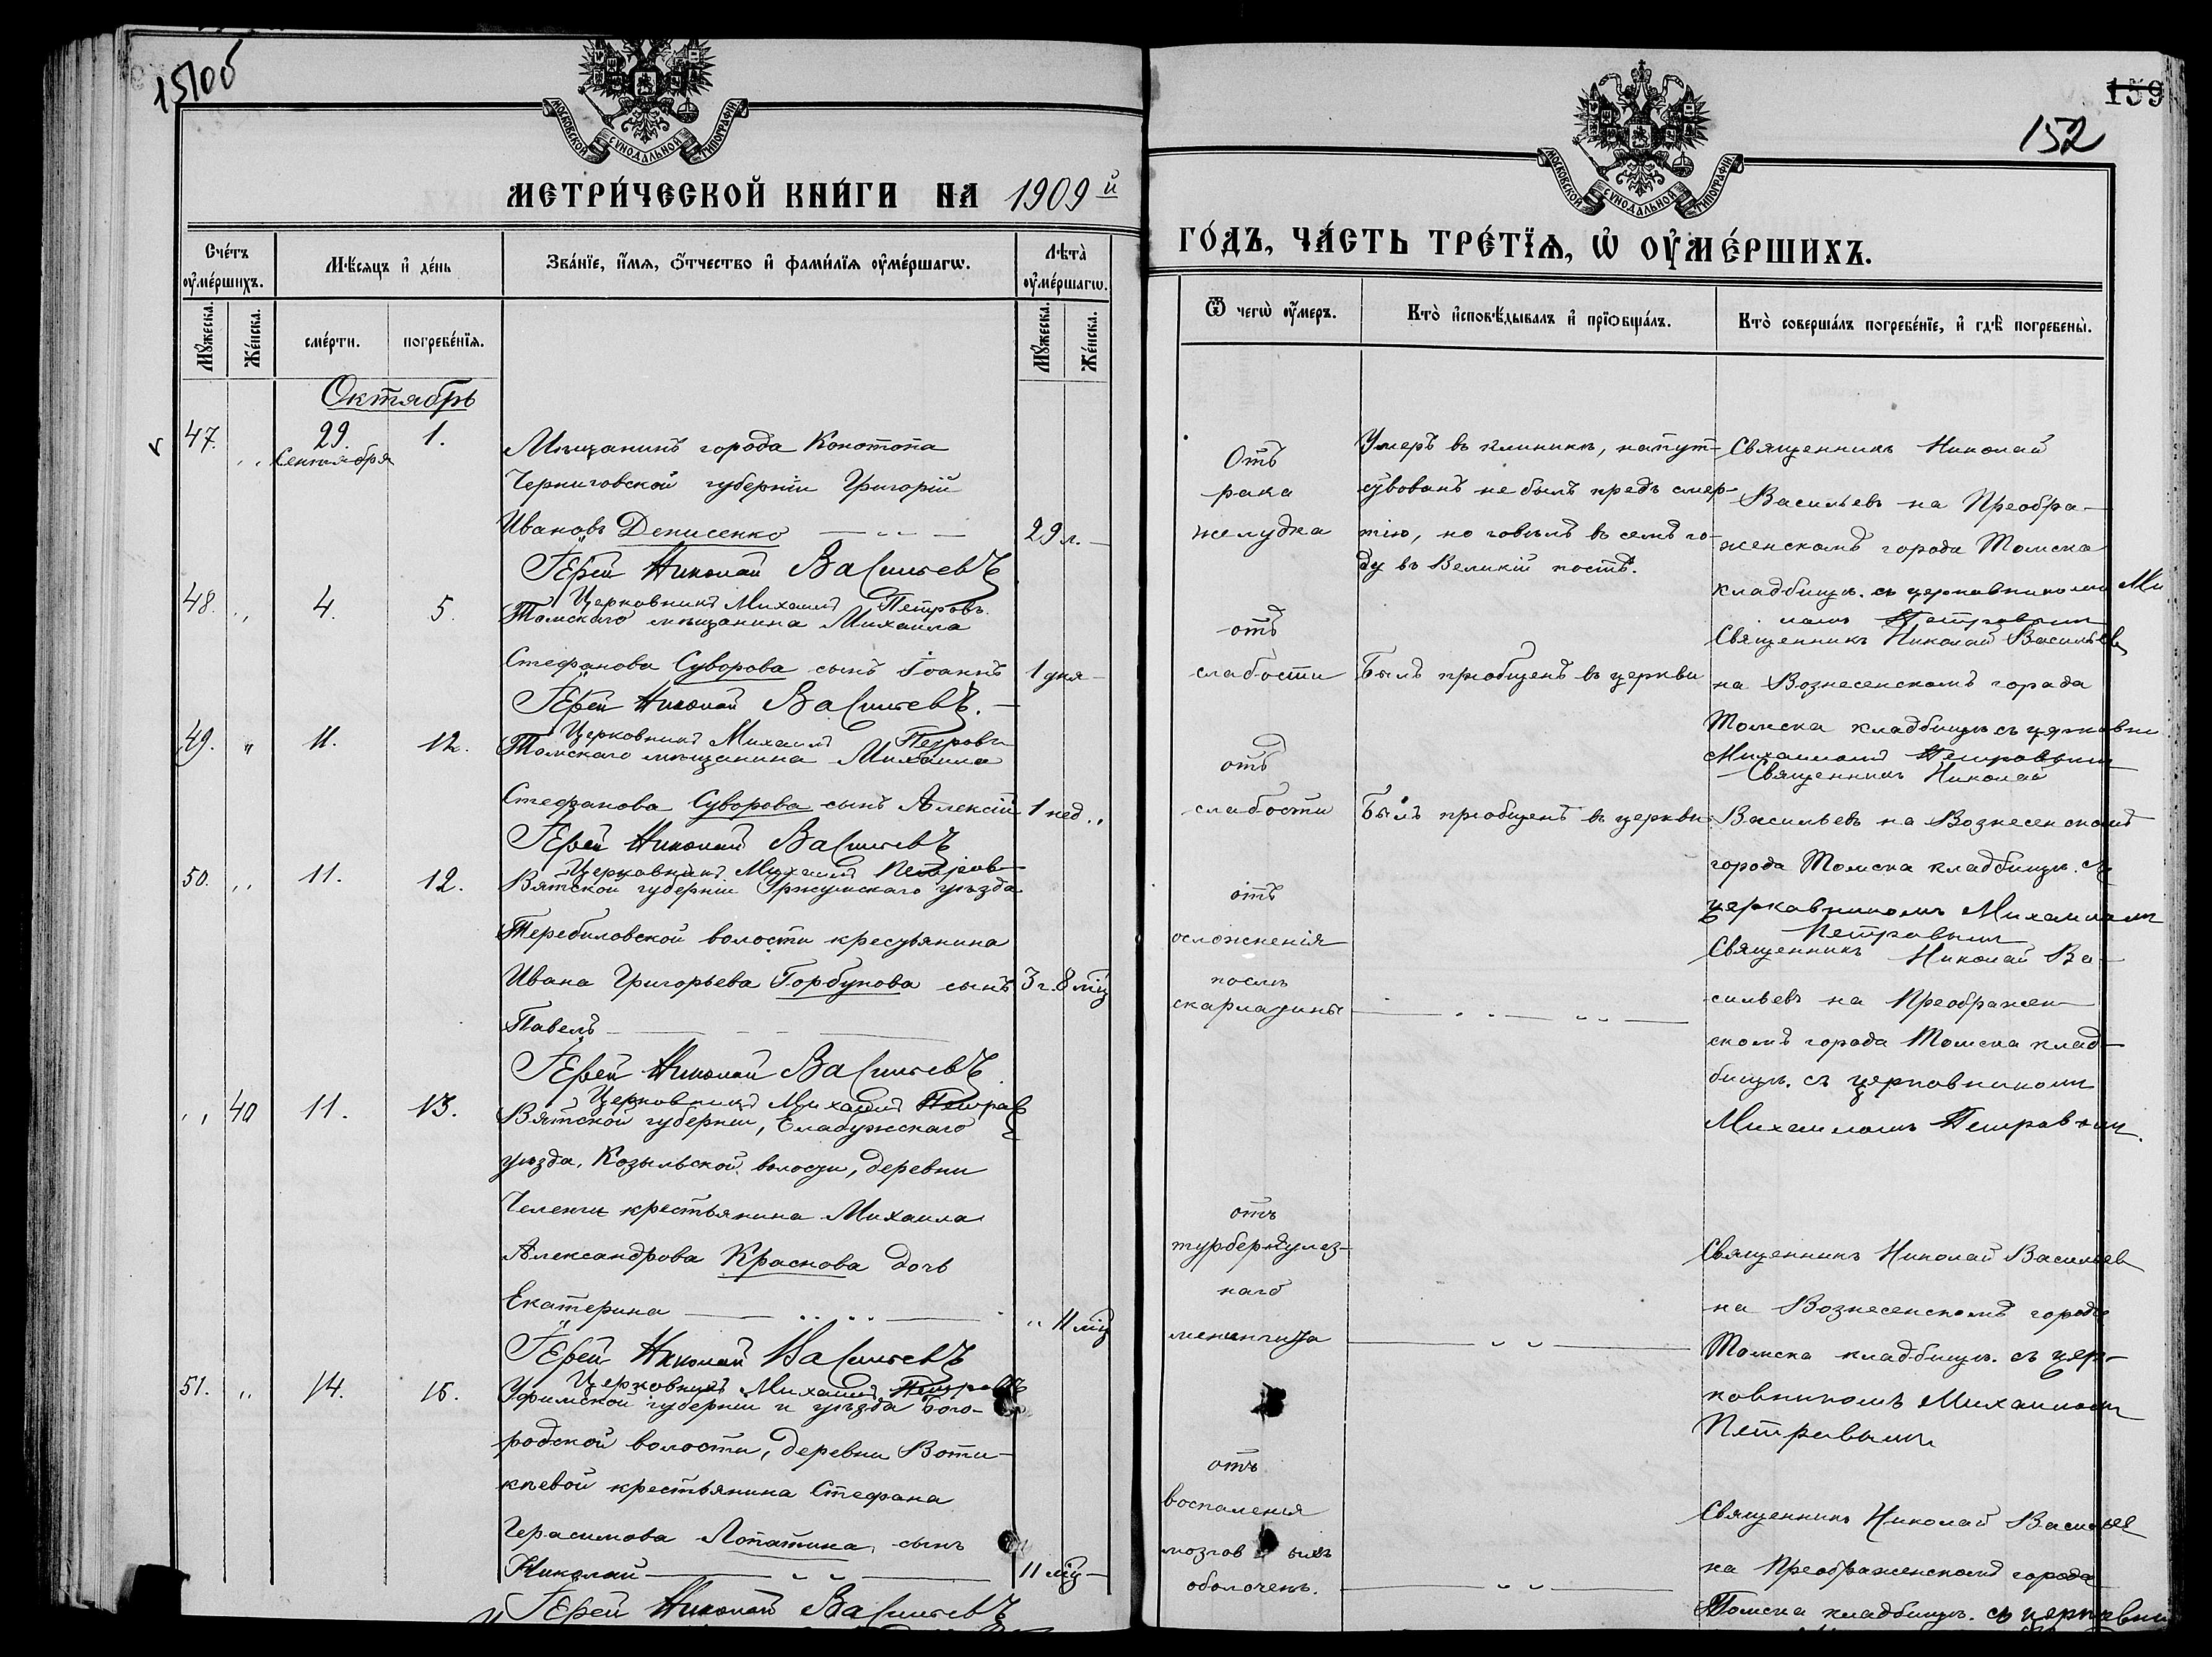 151об
МОСКОВСКОЙ СѴНОДАЛЬНОЙ ТИПОГРАФІИ
МЕТРИ́ЧЕСКОЙ КНИ́ГИ НА 1909й
Сче́тъ оу҆ме́ршихъ.
Мѣ́сяцъ и҆ де́нь
Зва́нїе, и҆́мя, ѻ҆́тчество и҆ фами́лїя оу҆ме́ршагѡ.
Лѣта̀ оу҆ме́ршагѡ.
Мꙋ́жеска.
Же́нска.
сме́рти.
погребе́нїя.
Мꙋ́жеска.
Же́нска.
Октябрь
47. „ 29. Сентября 1.
Мѣщанинъ города Конотопа
Черниговской губерніи Григорій
Ивановъ Денисенко 29 л.
Іерей Николай Васильевъ
Церковникъ Михаилъ Петровъ.
48. „ 4. 5.
Томскаго мѣщанина Михаила
Стефанова Суворова сынъ Іоаннъ 1 дня
Іерей Николай Васильевъ.
Церковникъ Михаилъ Петровъ
49. „ 11. 12.
Томскаго мѣщанина Михаила
Стефанова Суворова сынъ Алексій 1 нед.
Іерей Николай Васильевъ
Церковникъ Михаилъ Петровъ
50. „ 11. 12.
Вятской губерніи Уржумскаго уѣзда
Теребиловской волости крестьянина
Ивана Григорьева Горбунова сынъ 3 г. 8 мц
Павелъ
Іерей Николай Васильевъ
Церковникъ Михаилъ Петров
„ 40 11. 13.
Вятской губерніи, Елабужскаго
уѣзда, Козыльской волости, деревни
крестьянина Михаила
Александрова Краснова дочь
Екатерина „ 11 мц
Іерей Николай Васильевъ
Церковникъ Михаилъ Петровъ
51. „ 14. 15.
Уфимской губерніи и уѣзда Бого-
родской волости, деревни Воти-
кѣевой крестьянина Стефана
Герасимова Лопатина, сынъ
Николай 11 мц
Іерей Николай Васильевъ
159
152
МОСКОВСКОЙ СѴНОДАЛЬНОЙ ТИПОГРАФІИ
ГО́ДЪ, ЧА́СТЬ ТРЕ́ТЇѦ, Ѡ҆ ОУ҆МЕ́РШИХЪ.
Ѿ чегѡ̀ оу҆́меръ.
Кто̀ и҆сповѣ́дывалъ и҆ прїѻбща́лъ.
Кто̀ соверша́лъ погребе́нїе, и҆ гдѣ̀ погребены̀.
Отъ
рака
желудка
Умеръ въ клиникѣ, напут-
ствованъ не былъ предъ смер-
тію, но говѣлъ въ семъ го-
ду въ Великій постъ.
Священникъ Николай
Васильевъ на Преобра-
женскомъ города Томска
кладбищѣ. съ церковникомъ Ми
иломъ Петровымъ
отъ
слабости
Былъ пріобщенъ въ церкви
Священникъ Николай Васильев
на Вознесенскомъ города
Томска кладбищѣ съ церковни
Михаиломъ Петровымъ
отъ
слабости
Былъ пріобщенъ въ церкви
Священникъ Николай
Васильевъ на Вознесенскомъ
города Томска кладбищѣ. съ
церковникомъ Михаиломъ
Петровымъ
отъ
осложненія
послѣ
скарлатины
Священникъ Николай Ва-
сильевъ на Преображен-
скомъ города Томска клад-
бищѣ. съ церковникомъ
Михаиломъ Петровым.
отъ
турберкулез-
наго
менингита
Священникъ Николай Васильев
на Вознесенскомъ города
Томска кладбищѣ. съ цер-
ковникомъ Михаиломъ
Петровымъ
отъ
воспаленія
мозговыхъ
оболочекъ.
Священникъ Николай Василье
на Преображенскомъ города
Томска кладбищѣ. съ церковни